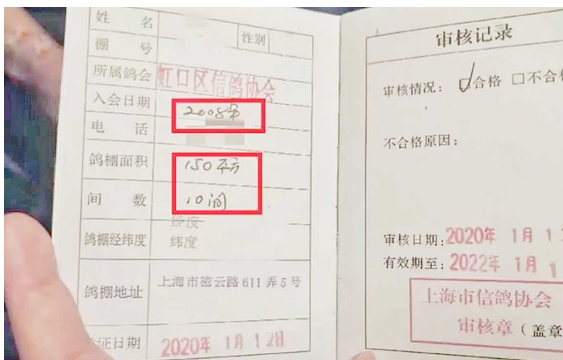 姓 名
性别
棚 号
所属鸽会 虹口区信鸽协会
入会日期 2008年
电 话
鸽棚面积 150平方
间 数 10间
鸽棚经纬度 经度
纬度
鸽棚地址 上海市密云路611弄5号
证日期 2020年 1月12日
审核记录
审核情况：☑合格 □不合格
不合格原因：
审核日期：2020年 1月1
有效期至：2022年 1月1
上海市信鸽协会
审核章（盖章